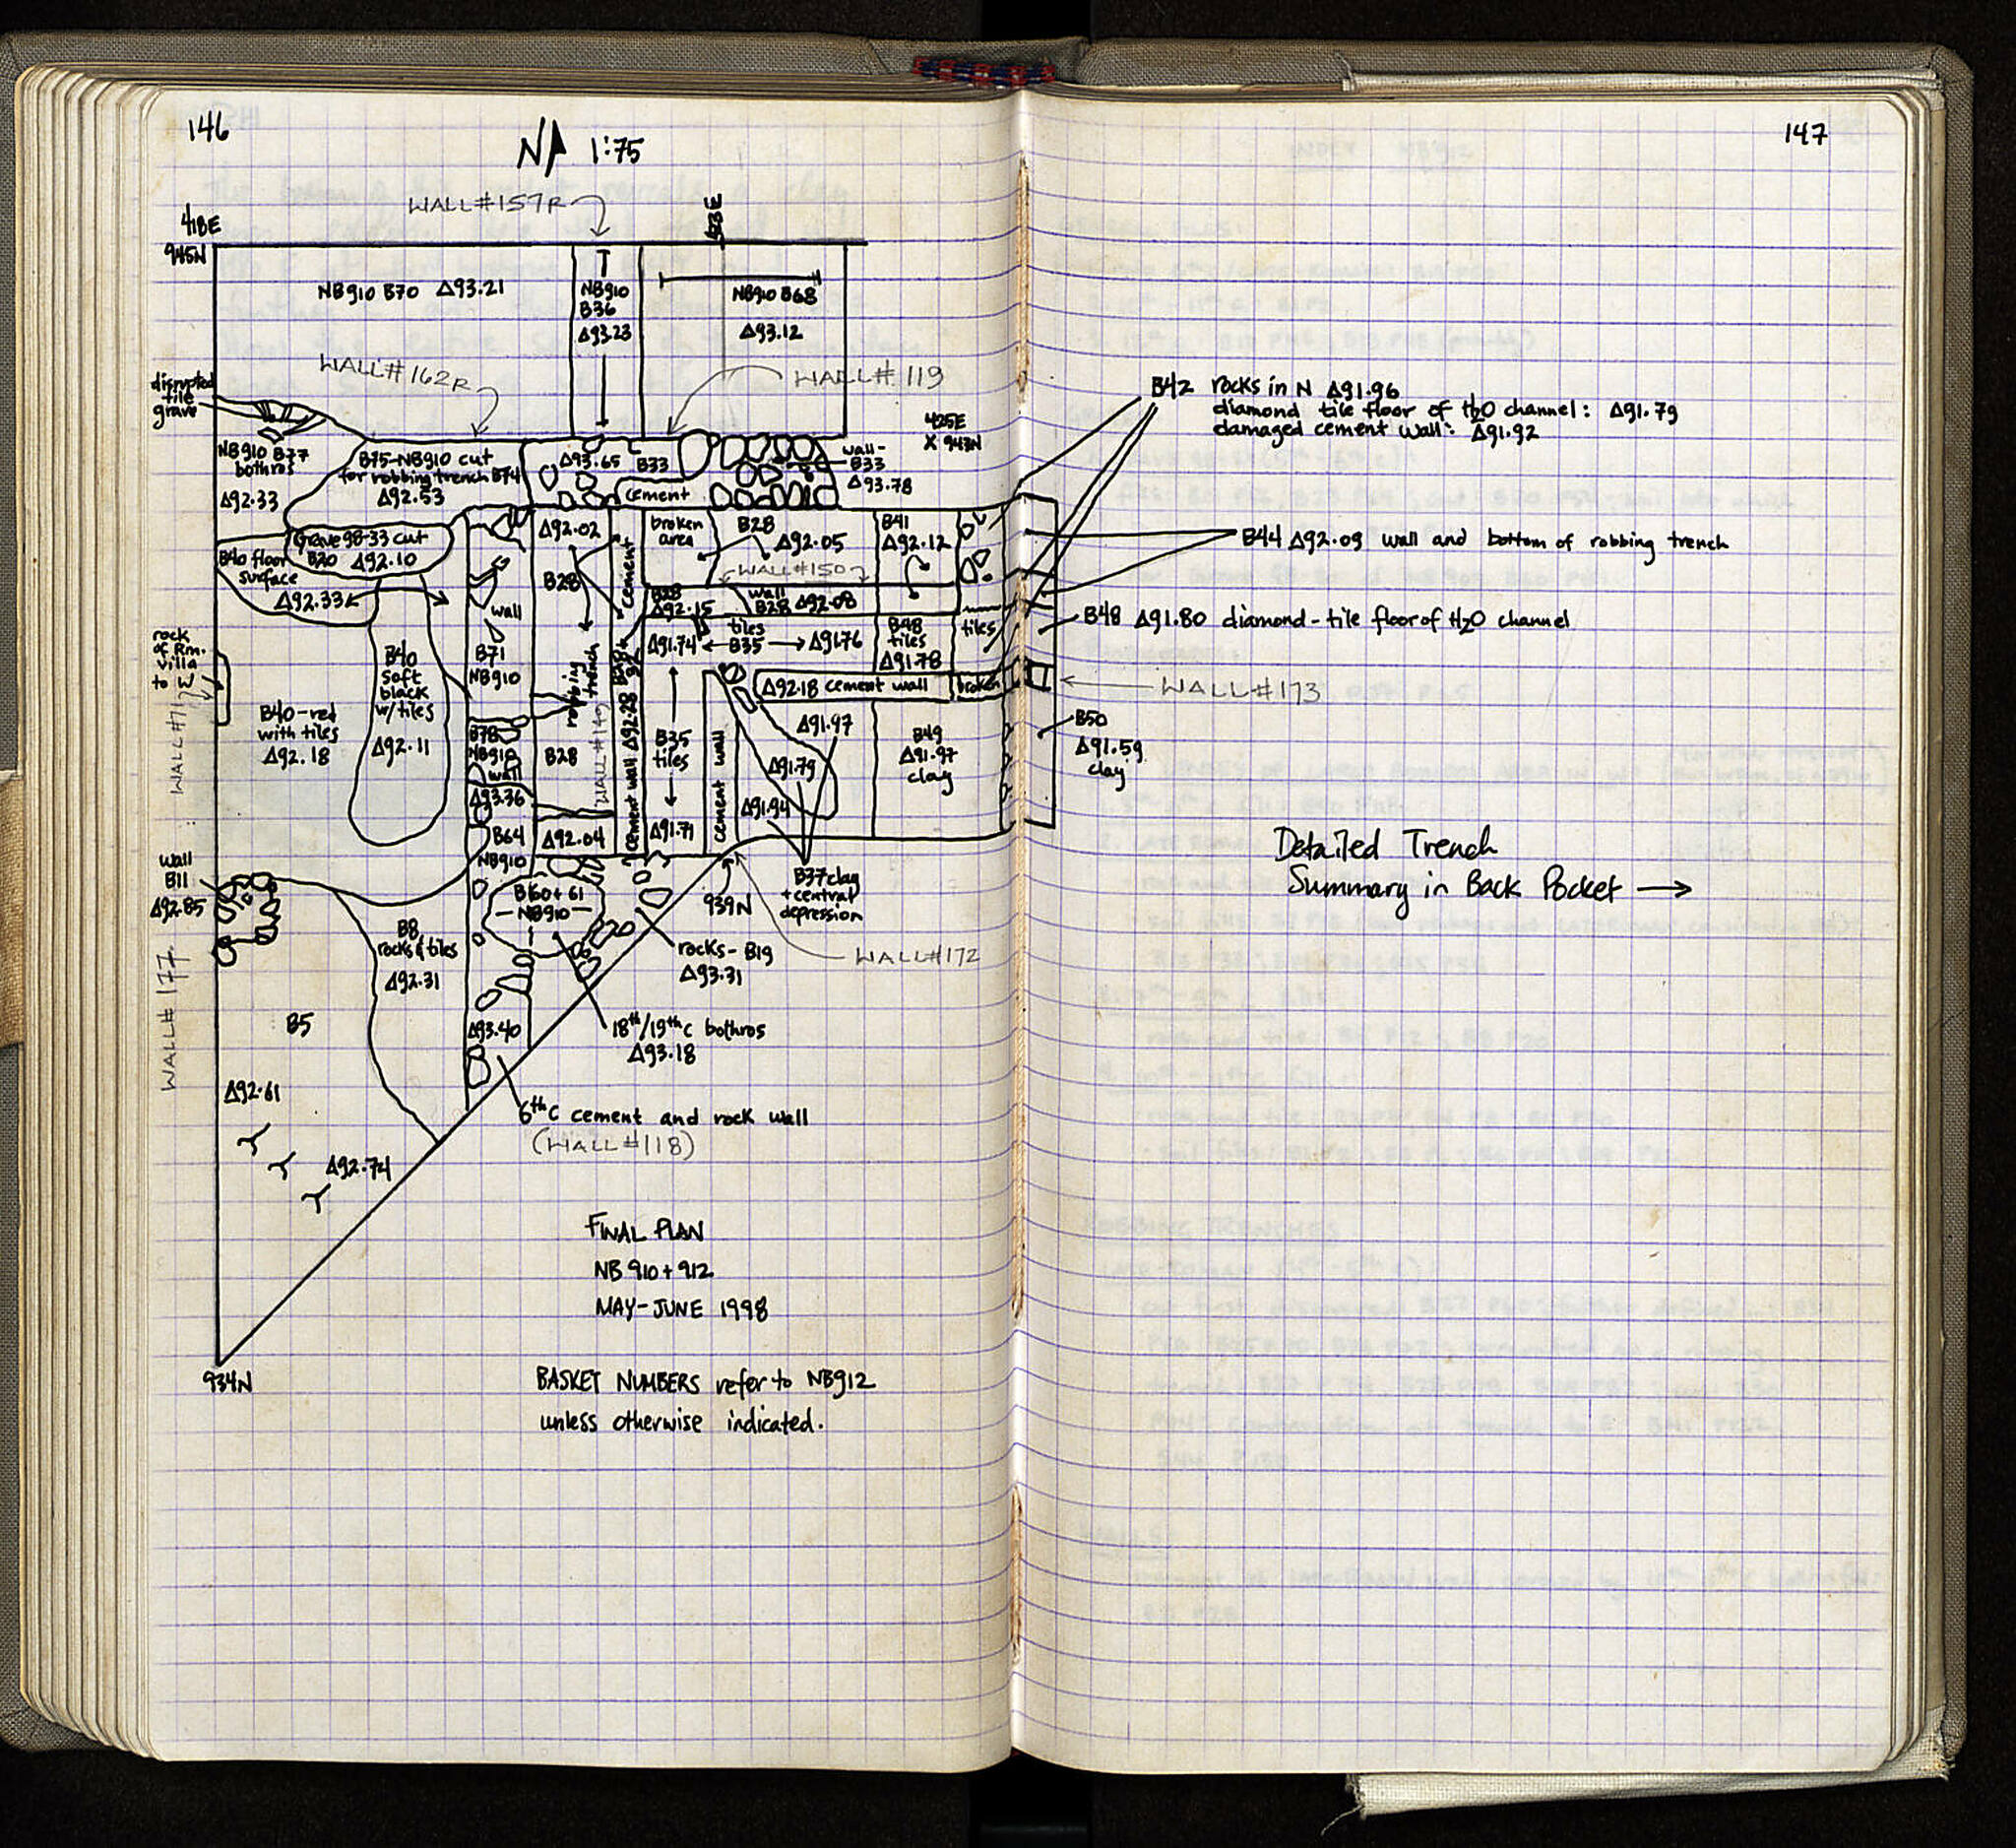 146
N 1:75
WALL #157R
423E
418E
945N
NB910 B70 Δ93.21
NB910
B36
Δ93.23
NB910 B68
Δ93.12
WALL #162R
WALL # 119
disrupted
tile
grave
NB910 B77
bothros
Δ92.33
B75-NB910 cut
for robbing trench B74
Δ92.53
Δ93.65 B33
cement
wall-
B33
Δ93.78
425E
X 943N
Grave 98-33 cut
B20 Δ92.10
B40 floor
surface
Δ92.33
wall
B71
NB910
Δ92.02
B28
cement
broken
area
B28
Δ92.05
B41
Δ92.12
WALL #150
B28
Δ92.15
wall
B28 Δ92.08
Δ91.74
tiles
B35
Δ91.76
B48
tiles
Δ91.78
tiles
rock
of Rm.
villa
to W
WALL #71
B40-red
with tiles
Δ92.18
B40
soft
black
w/tiles
Δ92.11
robbing
trench
WALL #149
cement wall Δ92.28
Δ92.18 cement wall
broken
B78
NB910
wall
Δ93.36
B64
NB910
B28
Δ92.04
B35
tiles
Δ91.71
cement wall
Δ91.97
Δ91.79
Δ91.94
B49
Δ91.97
clay
wall
B11
Δ92.85
WALL # 177
B8
rocks & tiles
Δ92.31
B60+61
-NB910-
939N
B37 clay
+ central
depression
WALL #172
rocks- B19
Δ93.31
B5
Δ93.40
18th/19th c bothros
Δ93.18
Δ92.61
6th C cement and rock wall
(WALL #118)
Δ92.74
FINAL PLAN
NB 910+912
MAY-JUNE 1998
934N
BASKET NUMBERS refer to NB912
unless otherwise indicated.
147
B42 rocks in N Δ91.96
diamond tile floor of H2O channel: Δ91.79
damaged cement wall: Δ91.92
B44 Δ92.09 wall and bottom of robbing trench
B48 Δ91.80 diamond-tile floor of H2O channel
WALL #173
B50
Δ91.59
clay
Detailed Trench
Summary in Back Pocket →